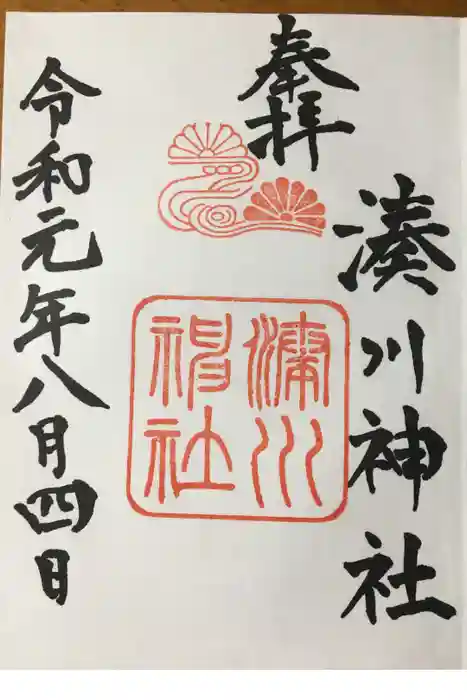 奉拝
湊川神社
湊川
神社
令和元年八月四日